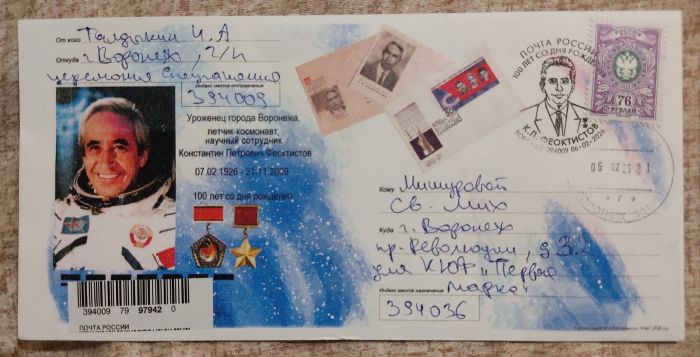 От кого Талдыкин И.А
Откуда г. Воронеж, г/п
церемония Спецгашения
Индекс места отправления
394009
Уроженец города Воронежа,
летчик-космонавт,
научный сотрудник
Константин Петрович Феоктистов
07.02.1926 - 21.11.2009
100 лет со дня рождения
394009 79 97942 0
ПОЧТА РОССИИ
ПОЧТА РОССИИ
100 ЛЕТ СО ДНЯ РОЖДЕНИЯ
К.П. ФЕОКТИСТОВ
394009 06-02-2026
РОССИЯ
76
РУБЛЕЙ
06 02 26 21
Кому Мишуровой
Св. Мих
Куда г. Воронеж
пр. Революции, д. 32
для КЮФ "Первая
марка"
Индекс места назначения
394036